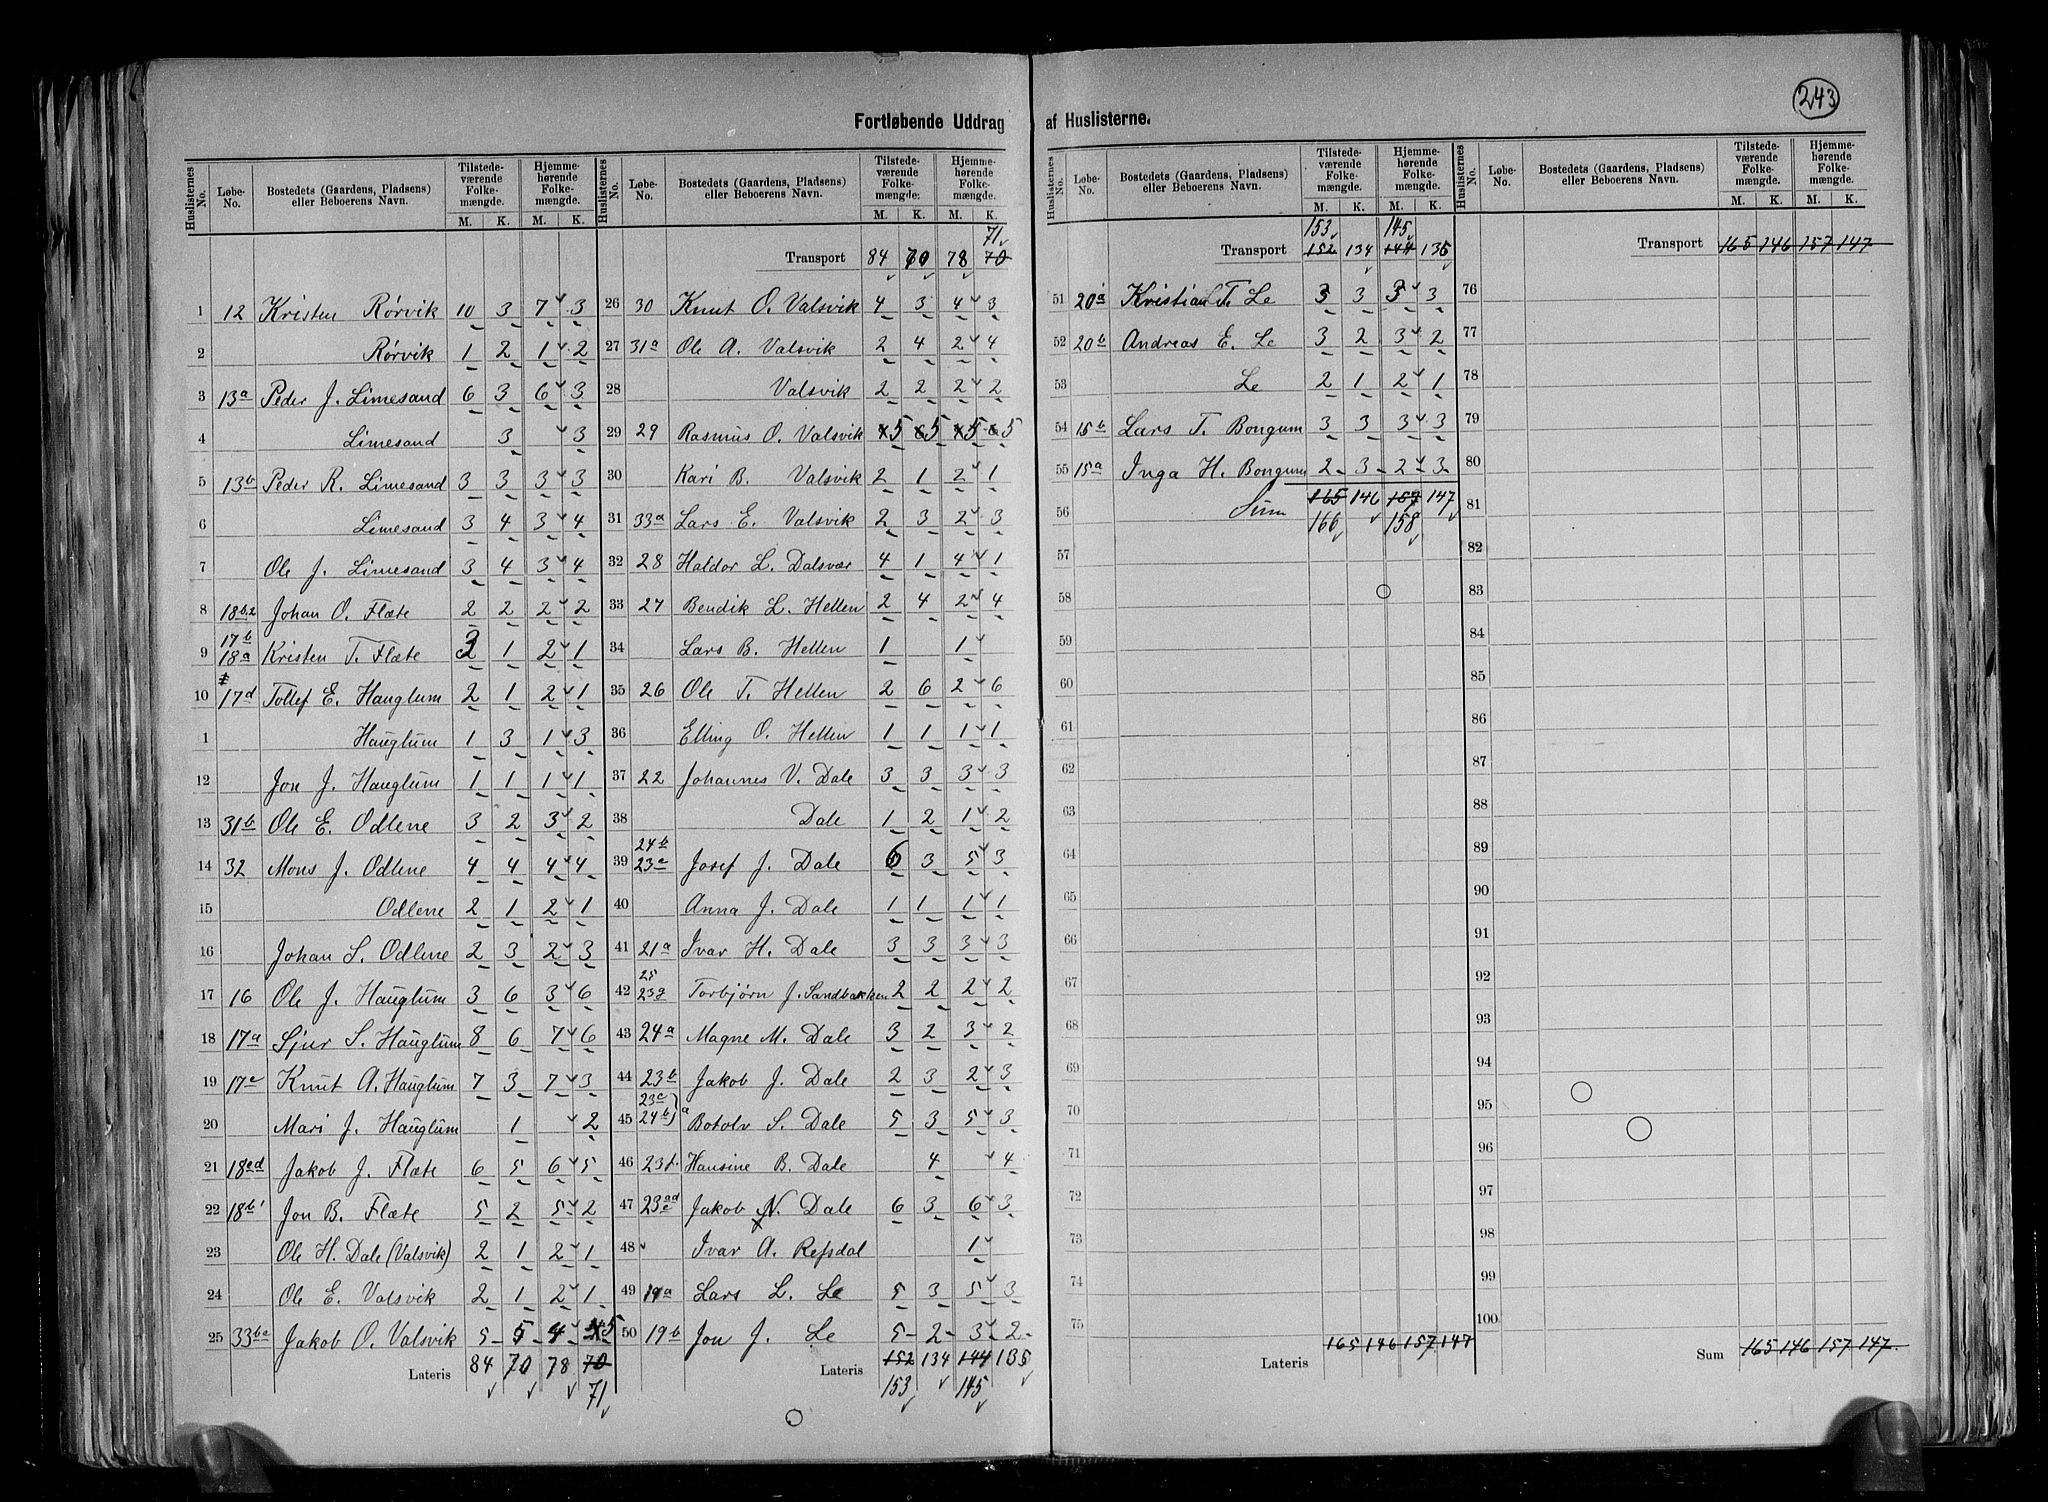 243
Fortløbende Uddrag af Huslisterne.
Huslisternes No. Løbe-No. Bostedets (Gaardens, Pladsens) eller Beboerens Navn. Tilstedeværende Folkemængde. M. K. Hjemmehørende Folkemængde. M. K.
1 12 Kristen Rørvik 10 3 7 3
2 Rørvik 1 2 1 2
3 13a Peder J. Limesand 6 3 6 3
4 Limesand 3 3
5 13b Peder R. Limesand 3 3 3 3
6 Limesand 3 4 3 4
7 Ole J. Limesand 3 4 3 4
8 18b2 Johan O. Flæte 2 2 2 2
9 17b 18a Kristen T. Flæte 3 1 2 1
10 17d Tollef E. Hauglum 2 1 2 1
1 Hauglum 1 3 1 3
12 Jon J. Hauglum 1 1 1 1
13 31b Ole E. Odlene 3 2 3 2
14 32 Mons J. Odlene 4 4 4 4
15 Odlene 2 1 2 1
16 Johan S. Odlene 2 3 2 3
17 16 Ole J. Hauglum 3 6 3 6
18 17a Sjur S. Hauglum 8 6 7 6
19 17c Knut A. Hauglum 7 3 7 3
20 Mari J. Hauglum 1 2
21 18cd Jakob J. Flæte 6 5 6 5
22 18b1 Jon B. Flæte 5 2 5 2
23 Ole H. Dale (Valsvik) 2 1 2 1
24 Ole E. Valsvik 2 1 2 1
25 33bc Jakob O. Valsvik 5 5 4 5
Lateris 84 70 78 70
71
Huslisternes No. Løbe-No. Bostedets (Gaardens, Pladsens) eller Beboerens Navn. Tilstedeværende Folkemængde. M. K. Hjemmehørende Folkemængde. M. K.
71
Transport 84 70 78 70
26 30 Knut O. Valsvik 4 3 4 3
27 31a Ole A. Valsvik 2 4 2 4
28 Valsvik 2 2 2 2
29 29 Rasmus O. Valsvik 5 5 5 5
30 Kari B. Valsvik 2 1 2 1
31 33a Lars E. Valsvik 2 3 2 3
32 28 Haldor L. Dalsvær 4 1 4 1
33 27 Bendik L. Hellen 2 4 2 4
34 Lars B. Hellen 1 1
35 26 Ole T. Hellen 2 6 2 6
36 Elling O. Hellen 1 1 1 1
37 22 Johannes V. Dale 3 3 3 3
38 Dale 1 2 1 2
39 24b 23c Josef J. Dale 6 3 5 3
40 Anna J. Dale 1 1 1 1
41 21a Ivar H. Dale 3 3 3 3
42 25 23g Torbjørn J. Sandbakken 2 2 2 2
43 24a Magne M. Dale 3 2 3 2
44 23b Jakob J. Dale 2 3 2 3
45 23c 24b a Botolv S. Dale 5 3 5 3
46 23f. Hansine B. Dale 4 4
47 23ad e Jakob N. Dale 6 3 6 3
48 Ivar A. Refsdal 1
49 19a Lars L. Le 5 3 5 3
50 19b Jon J. Le 5 2 3 2
Lateris 152 134 144 135
153 145
Huslisternes No. Løbe-No. Bostedets (Gaardens, Pladsens) eller Beboerens Navn. Tilstedeværende Folkemængde. M. K. Hjemmehørende Folkemængde. M. K.
153 145
Transport 152 134 144 135
51 20a Kristian T. Le 3 3 3 3
52 20b Andreas E. Le 3 2 3 2
53 Le 2 1 2 1
54 15b Lars T. Bongum 3 3 3 3
55 15a Inga H. Bongum 2 3 2 3
56 Sum 165 146 157 147
166 158
57
58
59
60
61
62
63
64
65
66
67
68
69
70
71
72
73
74
75
Lateris 165 146 157 147
Huslisternes No. Løbe-No. Bostedets (Gaardens, Pladsens) eller Beboerens Navn. Tilstedeværende Folkemængde. M. K. Hjemmehørende Folkemængde. M. K.
Transport 165 146 157 147
76
77
78
79
80
81
82
83
84
85
86
87
88
89
90
91
92
93
94
95
96
97
98
99
100
Sum 165 146 157 147